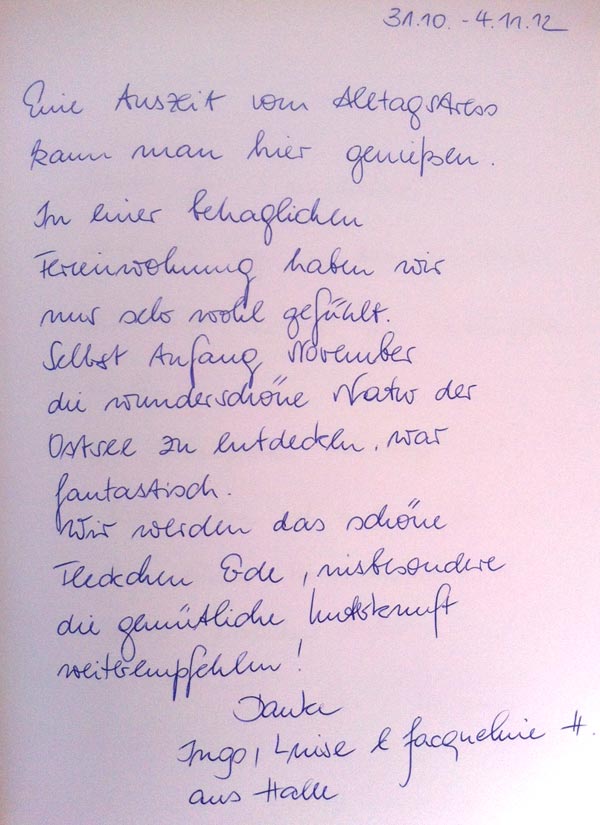 31.10. - 4.11.12
Eine Auszeit vom Alltagsstress
kann man hier genießen.
In einer behaglichen
Ferienwohnung haben wir
nur sehr wohl gefühlt.
Selbst Anfang November
die wunderschöne Natur der
Ostsee zu entdecken, war
fantastisch.
Wir werden das schöne
Fleckchen Erde, insbesondere
die gemütliche Unterkunft
weiterempfehlen!
Danke
Ingo, Luise & Jacqueline H.
aus Halle